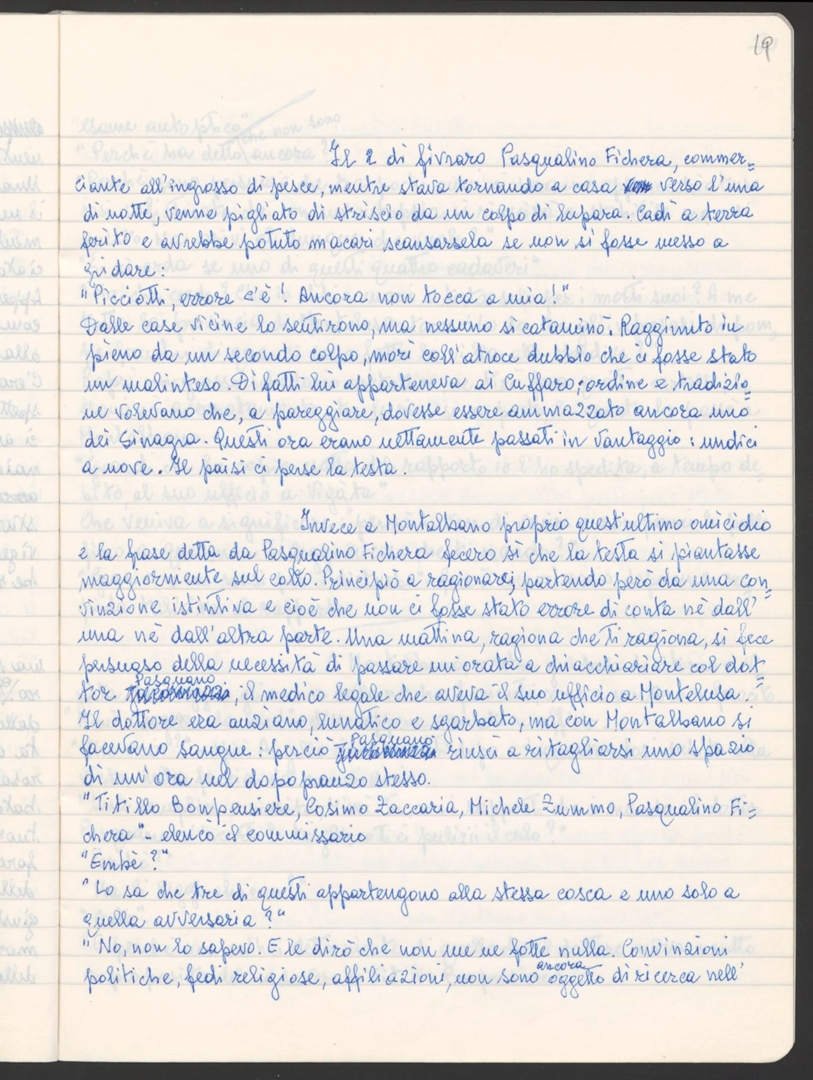 19
Il 2 di fivraro Pasqualino Fichera, commer=
ciante all'ingrosso di pesce, mentre stava tornando a casa verso l'una
di notte, venne pigliato di striscio da un colpo di lupara. Cadì a terra
ferito e avrebbe potuto macari scansarsela se non si fosse messo a
gridare:
"Picciotti, errore c'è! Ancora non tocca a mia!"
Dalle case vicine lo sentirono, ma nessuno si cataminò. Raggiunto in
pieno da un secondo colpo, morì coll'atroce dubbio che ci fosse stato
un malinteso. Difatti lui apparteneva ai Cuffaro: ordine e tradizio=
ne volevano che, a pareggiare, dovesse essere ammazzato ancora uno
dei Sinagra. Questi ora erano nettamente passati in vantaggio: undici
a nove. Il paìsi ci perse la testa.
Invece a Montalbano proprio quest'ultimo omicidio
e la frase detta da Pasqualino Fichera fecero sì che la testa si piantasse
maggiormente sul collo. Principiò a ragionare, partendo però da una con=
vinzione istintiva e cioè che non ci fosse stato errore di conta nè dall'
una nè dall'altra parte. Una mattina, ragiona che ti ragiona, si fece
persuaso della necessità di passare un'orata a chiacchiariare col dot=
tor Pasquano, il medico legale che aveva il suo ufficio a Montelusa.
Il dottore era anziano, lunatico e sgarbato, ma con Montalbano si
facevano sangue: perciò Pasquano rinscì a ritagliarsi uno spazio
di un'ora nel dopopranzo stesso.
"Titillo Bonpensiere, Cosimo Zaccaria, Michele Zummo, Pasqualino Fi=
chera" - elencò il commissario
"Embè?"
"Lo sa che tre di questi appartengono alla stessa cosca e uno solo a
quella avversaria?"
"No, non lo sapevo. E le dirò che non me ne fotte nulla. Convinzioni
politiche, fedi religiose, affiliazioni, non sono ancora oggetto di ricerca nell'